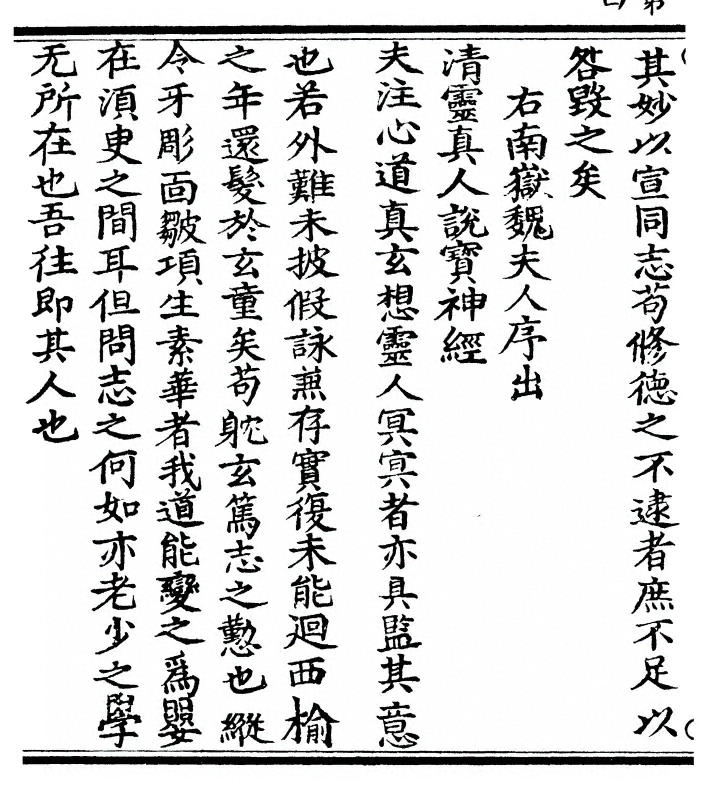 其妙以宣同志苟修德之不逮者庶不足以
咎毀之矣
右南嶽魏夫人序出
清靈真人說寶神經
夫注心道真玄想靈人冥冥者亦具監其意
也若外難未披假詠兼存實復未能迴西榆
之年還髮於玄童矣苟躭玄篤志之懃也縱
令牙彫面皺項生素華者我道能變之為嬰
在湏臾之間耳但問志之何如亦老少之學
无所在也吾往即其人也